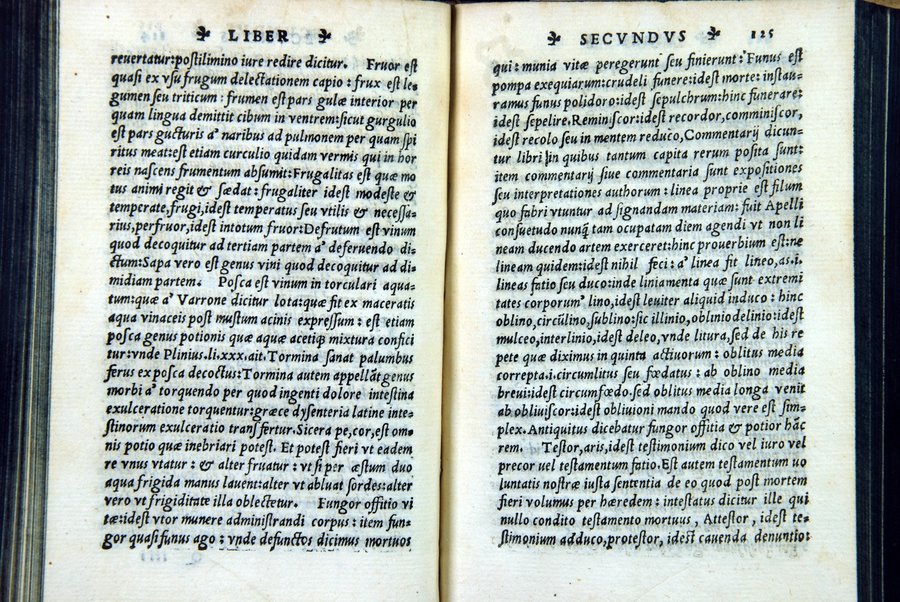 LIBER
reuertatur:postilimino iure redire dicitur. Fruor est
quasi ex vsu frugum delectationem capio : frux est le,
gumen seu triticum : frumen est pars gulæ interior per
quam lingua demittit cibum in ventrem:sicut gurgulio
est pars gucturis a' naribus ad pulmonem per quam spi
ritus meat:est etiam curculio quidam vermis qui in hor
reis nascens frumentum absumit:Frugalitas est quæ mo
tus animi regit & sædat : frugaliter idest modeste &
temperate,frugi,idest temperatus seu vtilis & necessa,
rius,perfruor,idest intotum fruor:Defrutum est vinum
quod decoquitur ad tertiam partem a' deferuendo di,
ctum:Sapa vero est genus vini quod decoquitur ad di,
midiam partem. Posca est vinum in torculari aqua,
tum:quæ a' Varrone dicitur lota:quæ fit ex maceratis
aqua vinaceis post mustum acinis expressum : est etiam
posca genus potionis quæ aquæ acetiq̃ mixtura confici
tur:vnde Plinius.li.xxx.ait.Tormina sanat palumbus
ferus ex posca decoctus:Tormina autem appellãt genus
morbi a' torquendo per quod ingenti dolore intestina
exulceratione torquentur:græce dysenteria latine inte,
stinorum exulceratio transfertur.Sicera pe,cor,est om,
nis potio quæ inebriari potest. Et potest fieri vt eadem
re vnus vtatur : & alter fruatur : vt si per æstum duo
aqua frigida manus lauent:alter vt abluat sordes:alter
vero vt frigiditate illa oblectetur. Fungor offitio vi
tæ:idest vtor munere administrandi corpus : item fun,
gor quasi funus ago : vnde defunctos dicimus mortuos
SECVNDVS 125
qui : munia vitæ peregerunt seu finierunt:Funus est
pompa exequiarum:crudeli funere:idest morte: instau,
ramus funus polidoro:idest sepulchrum:hinc funerare:
idest sepelire. Reminiscor:idest recordor,comminiscor,
idest recolo seu in mentem reduco,Commentarij dicun,
tur libri in quibus tantum capita rerum posita sunt:
item commentarij siue commentaria sunt expositiones
seu interpretationes authorum : linea proprie est filum
quo fabri vtuntur ad signandam materiam: fuit Apelli
consuetudo nunq̃ tam occupatam diem agendi vt non li
neam ducendo artem exerceret:hinc prouerbium est:ne
lineam quidem:idest nihil feci: a' linea fit lineo,as.i.
lineas fatio seu duco:inde liniamenta quæ sunt extremi
tates corporum' lino,idest leuiter aliquid induco : hinc
oblino,circũlino,sublino:sic illinio,oblinio delinio:idest
mulceo,interlinio,idest deleo,vnde litura,sed de his re
pete quæ diximus in quinta actiuorum : oblitus media
correpta.i.circumlitus seu fœdatus : ab oblino media
breui:idest circumfœdo.sed oblitus media longa venit
ab obliuiscor:idest obliuioni mando quod vere est sim,
plex. Antiquitus dicebatur fungor offitia & potior hãc
rem. Testor,aris,idest testimonium dico vel iuro vel
precor uel testamentum fatio.Est autem testamentum uo
luntatis nostræ iusta sententia de eo quod post mortem
fieri volumus per hæredem : intestatus dicitur ille qui
nullo condito testamento mortuus , Attestor , idest te,
stimonium adduco,protestor, idest cauenda denuntio: